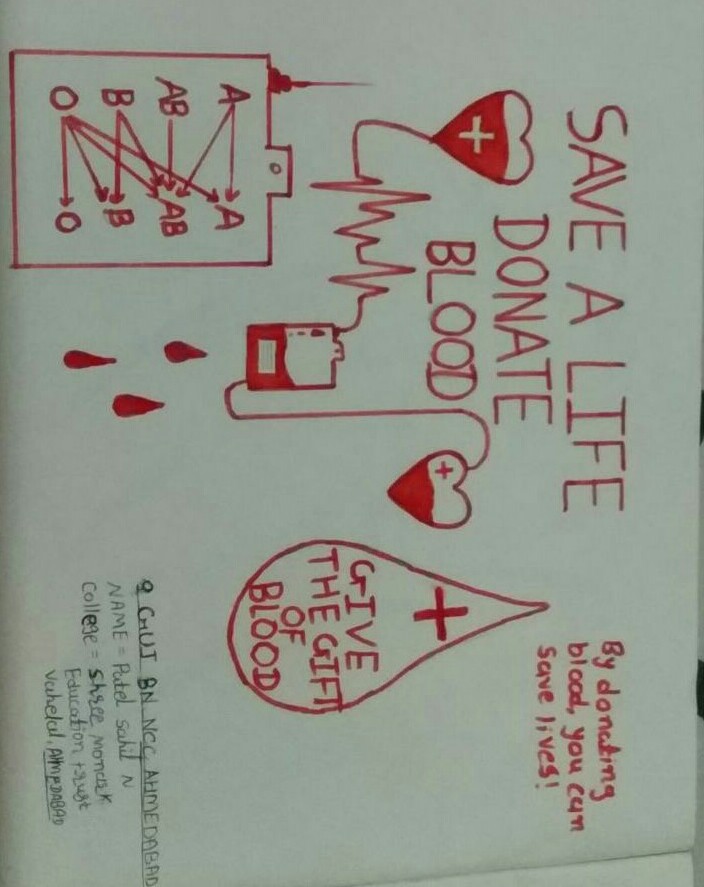 SAVE A LIFE
DONATE
BLOOD
By donating
blood, you can
save lives!
A A
AB AB
B B
O O
GIVE
THE GIFT
OF
BLOOD
9 GUJ BN NCC AHMEDABAD
NAME = Patel Sahil N
College = Shree Monark
Education trust
Vahelal, AHMEDABAD